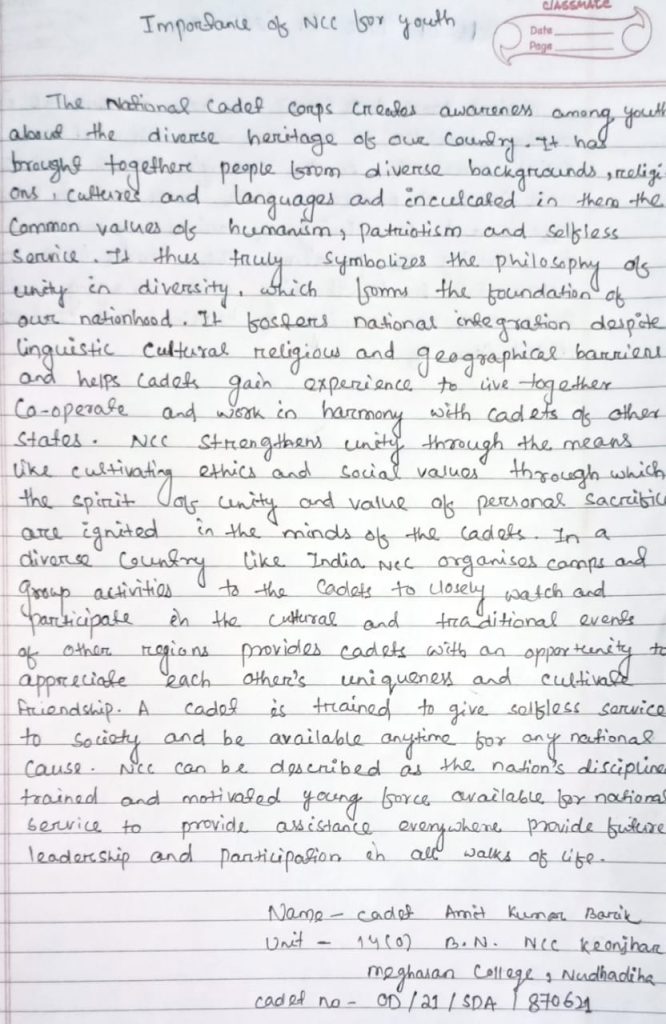 CLASSMATE
Date
Page
Importance of NCC for youth,
The National Cadet Corps creates awareness among youth
about the diverse heritage of our country. It has
brought together people from diverse backgrounds, religi
ons, cultures and languages and inculcated in them the
common values of humanism, patriotism and selfless
service. It thus truly symbolizes the philosophy of
unity in diversity, which forms the foundation of
our nationhood. It fosters national integration despite
linguistic cultural religious and geographical barriers
and helps cadets gain experience to live together
Co-operate and work in harmony with cadets of other
states. NCC strengthens unity through the means
like cultivating ethics and social values through which
the spirit of unity and value of personal sacrific
are ignited in the minds of the cadets. In a
diverse country like India NCC organises camps and
group activities to the cadets to closely watch and
participate in the cultural and traditional events
of other regions provides cadets with an opportunity to
appreciate each other's uniqueness and cultivate
friendship. A cadet is trained to give selfless service
to society and be available anytime for any national
cause. NCC can be described as the nation's discipline
trained and motivated young force available for national
service to provide assistance everywhere provide future
leadership and participation in all walks of life.
Name - cadet Amit Kumar Barik
Unit - 14(O) B.N. NCC Keonjhar
Meghasan College, Nudhadiha
cadet no - OD/21/SDA/870621